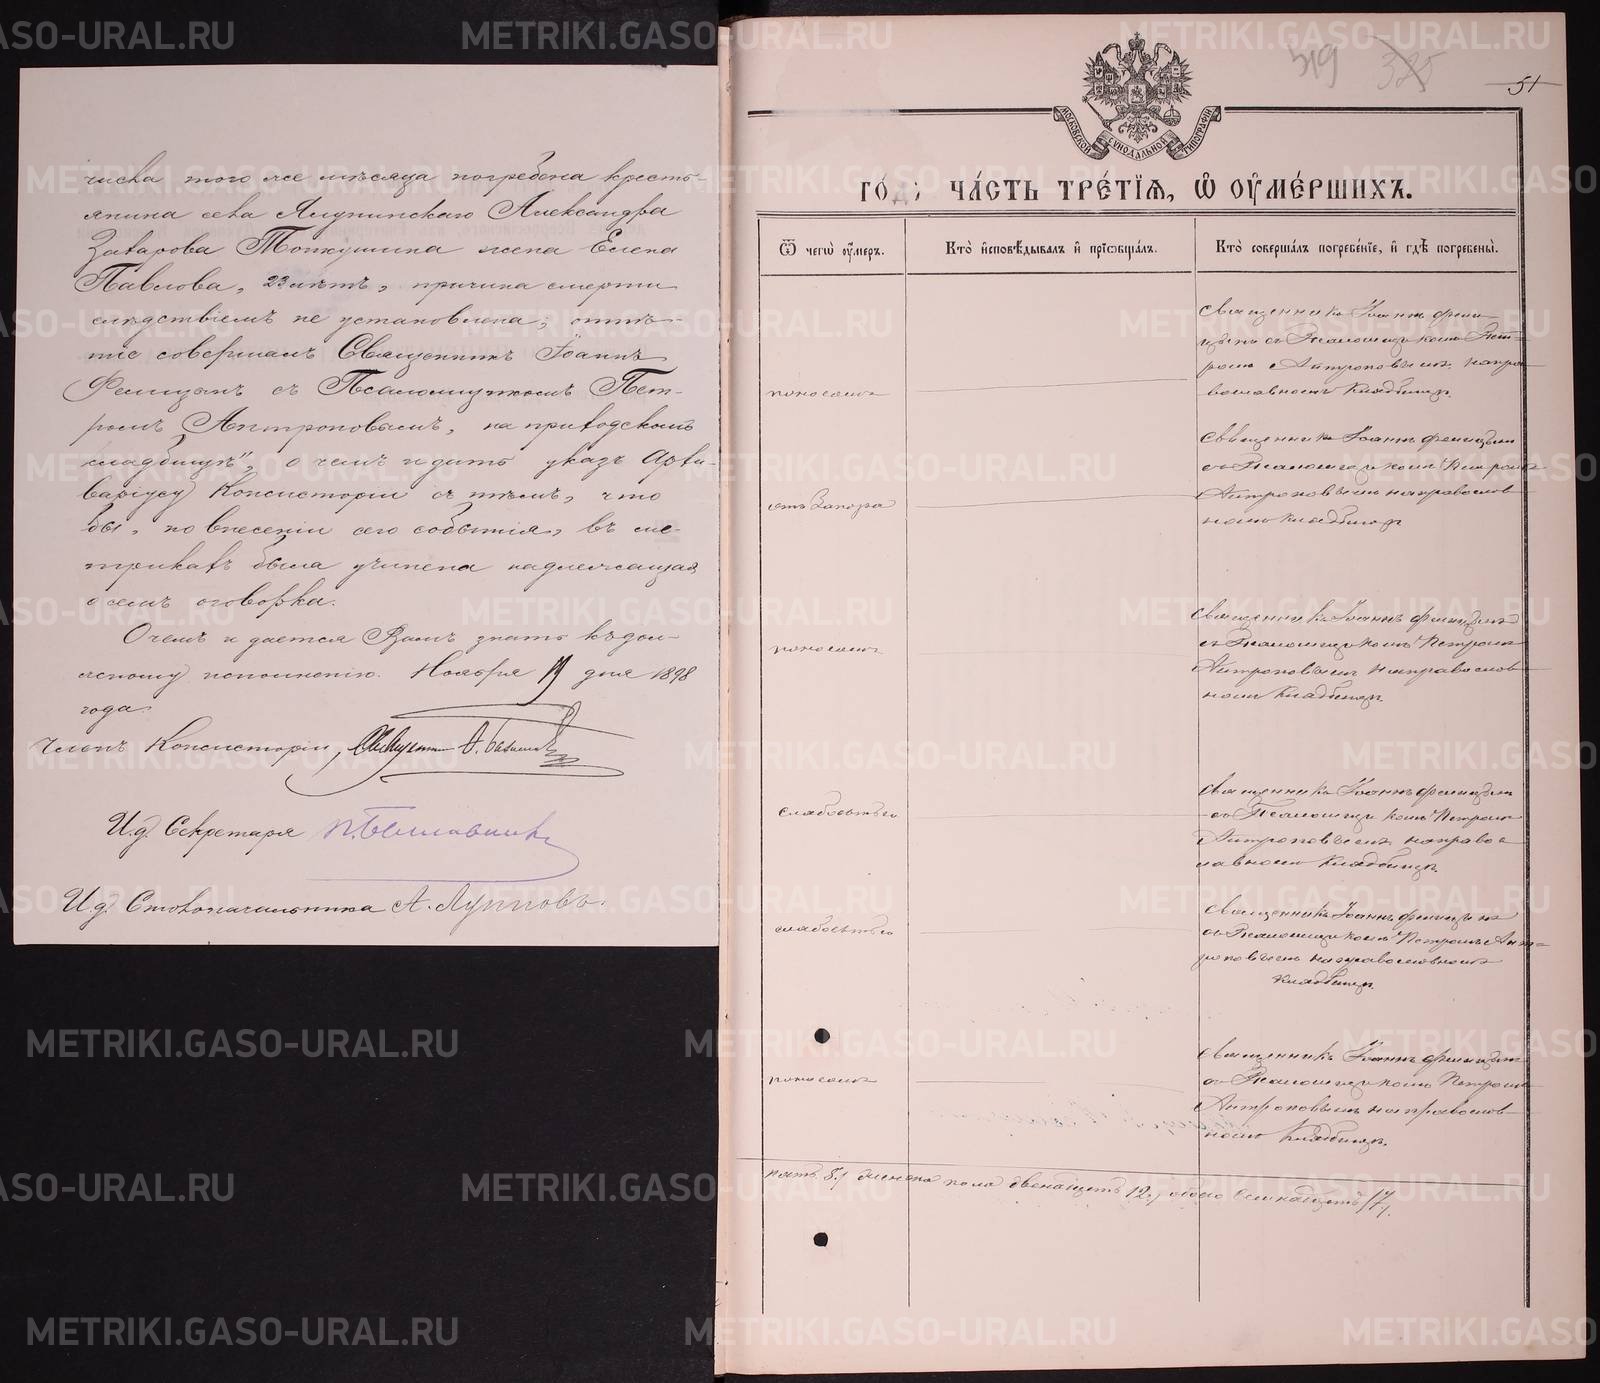 числа того же мѣсяца погребена кресть-
янина села Александра
Захарова жена Елена
Павлова, 23 лѣтъ, причина смерти
слѣдствіемъ не установлена; отпѣ-
тіе совершалъ Священникъ Іоаннъ
съ Псаломщикомъ Пет-
ромъ Антроповымъ, на приходскомъ
кладбищѣ", о чемъ и дать указъ Архи-
варіусу Консисторіи съ тѣмъ, что
бы, по внесеніи сего событія, въ ме-
трикахъ была учинена надлежащая
о семъ оговорка.
О чемъ и дается Вамъ знать къ дол-
жному исполненію. Ноября 19 дня 1898
года.
Членъ Консисторіи,
И.д. Секретаря
И.д. Столоначальника А. Лупповъ.
519 325 51
МОСКОВСКОЙ СѴНОДАЛЬНОЙ ТИПОГРАФІИ
ГО́ДЪ ЧА́СТЬ ТРЕ́ТІѦ, Ѡ҆ ОУ҆МЕ́РШИХЪ.
Ѿ чегѡ̀ оу҆́меръ. Кто̀ и҆сповѣ́дывалъ и҆ прїѡбща́лъ. Кто̀ соверша́лъ погребе́нїе, и҆ гдѣ̀ погребены̀.
Священникъ Іоаннъ
съ Псаломщикомъ Пет-
ромъ Антроповымъ на пра-
поносомъ
вославномъ кладбищѣ.
Священникъ Іоаннъ
съ Псаломщикомъ Петромъ
отъ Запора
Антроповымъ на православ-
номъ кладбищѣ
Священникъ Іоаннъ
съ Псаломщикомъ Петромъ
поносомъ
Антроповымъ на православ-
номъ кладбищѣ.
Священникъ Іоаннъ
слабостью
съ Псаломщикомъ Петромъ
Антроповымъ на правос
лавномъ кладбищѣ.
Священникъ Іоаннъ
слабостью
съ Псаломщикомъ Петромъ Ант=
роповымъ на православномъ
кладбищѣ.
Священникъ Іоаннъ
поносомъ
съ Псаломщикомъ Петромъ
Антроповымъ на православ-
номъ кладбищѣ.
пять 5. женска пола двенадцать 12. обоего семнадцать 17.
METRIKI.GASO-URAL.RU